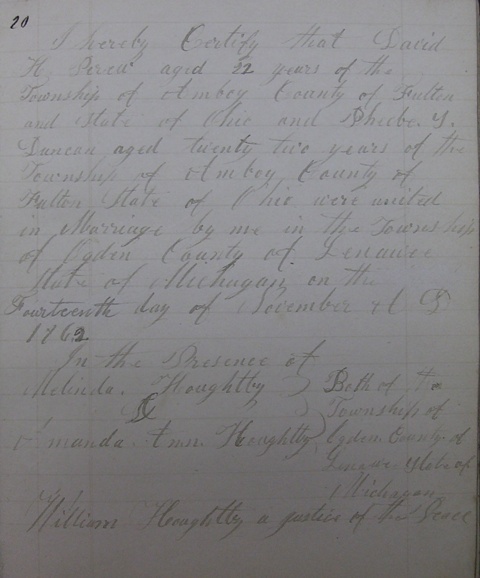 20
I hereby Certify that David
H. aged 22 years of the
Township of Amboy County of Fulton
and State of Ohio and Phebe. Y.
Duncan aged twenty two years of the
Township of Amboy County of
Fulton State of Ohio were united
in Marriage by me in the Township
of Ogden County of Lenawee
State of Michagan on the
Fourteenth day of November A D
1862
In the Presence of
Melinda. Houghtby Both of the
& Township of
Amanda Ann. Houghtby Ogden County of
State of
Michagan
William Houghtby a justice of the Peace